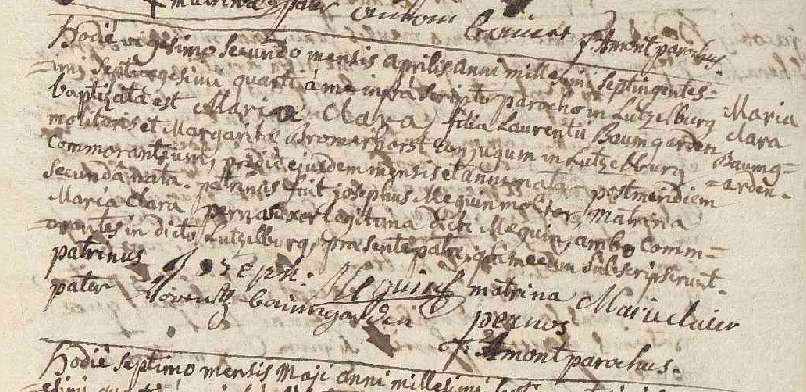 matrina
Hodie vigesimo secundo mensis aprilis anni millesimi septingentes=
=imi septuagesimi quarti à me infra scripto parocho in Lutzelburg
baptizata est Maria Clara filia Laurentii Baumgarden
molitoris et Margaritæ conjugum in Lutzelburg
commorantium, pridie ejusdem mensis et anni nata postmeridiem
secunda nata. patrinus fuit josephus Mequin molitor, matrina
Maria Clara uxor legitima dicti Mequin, ambo comm=
=orantes in dicto Lutzelborg, præsente patre, qui mecum subscripserunt.
Maria
Clara
Baumg=
=arden.
patrinus joseph: Mequin matrina
pater baumgarden
f. Amont parochus.
Hodie septimo mensis Maji anni millesimi